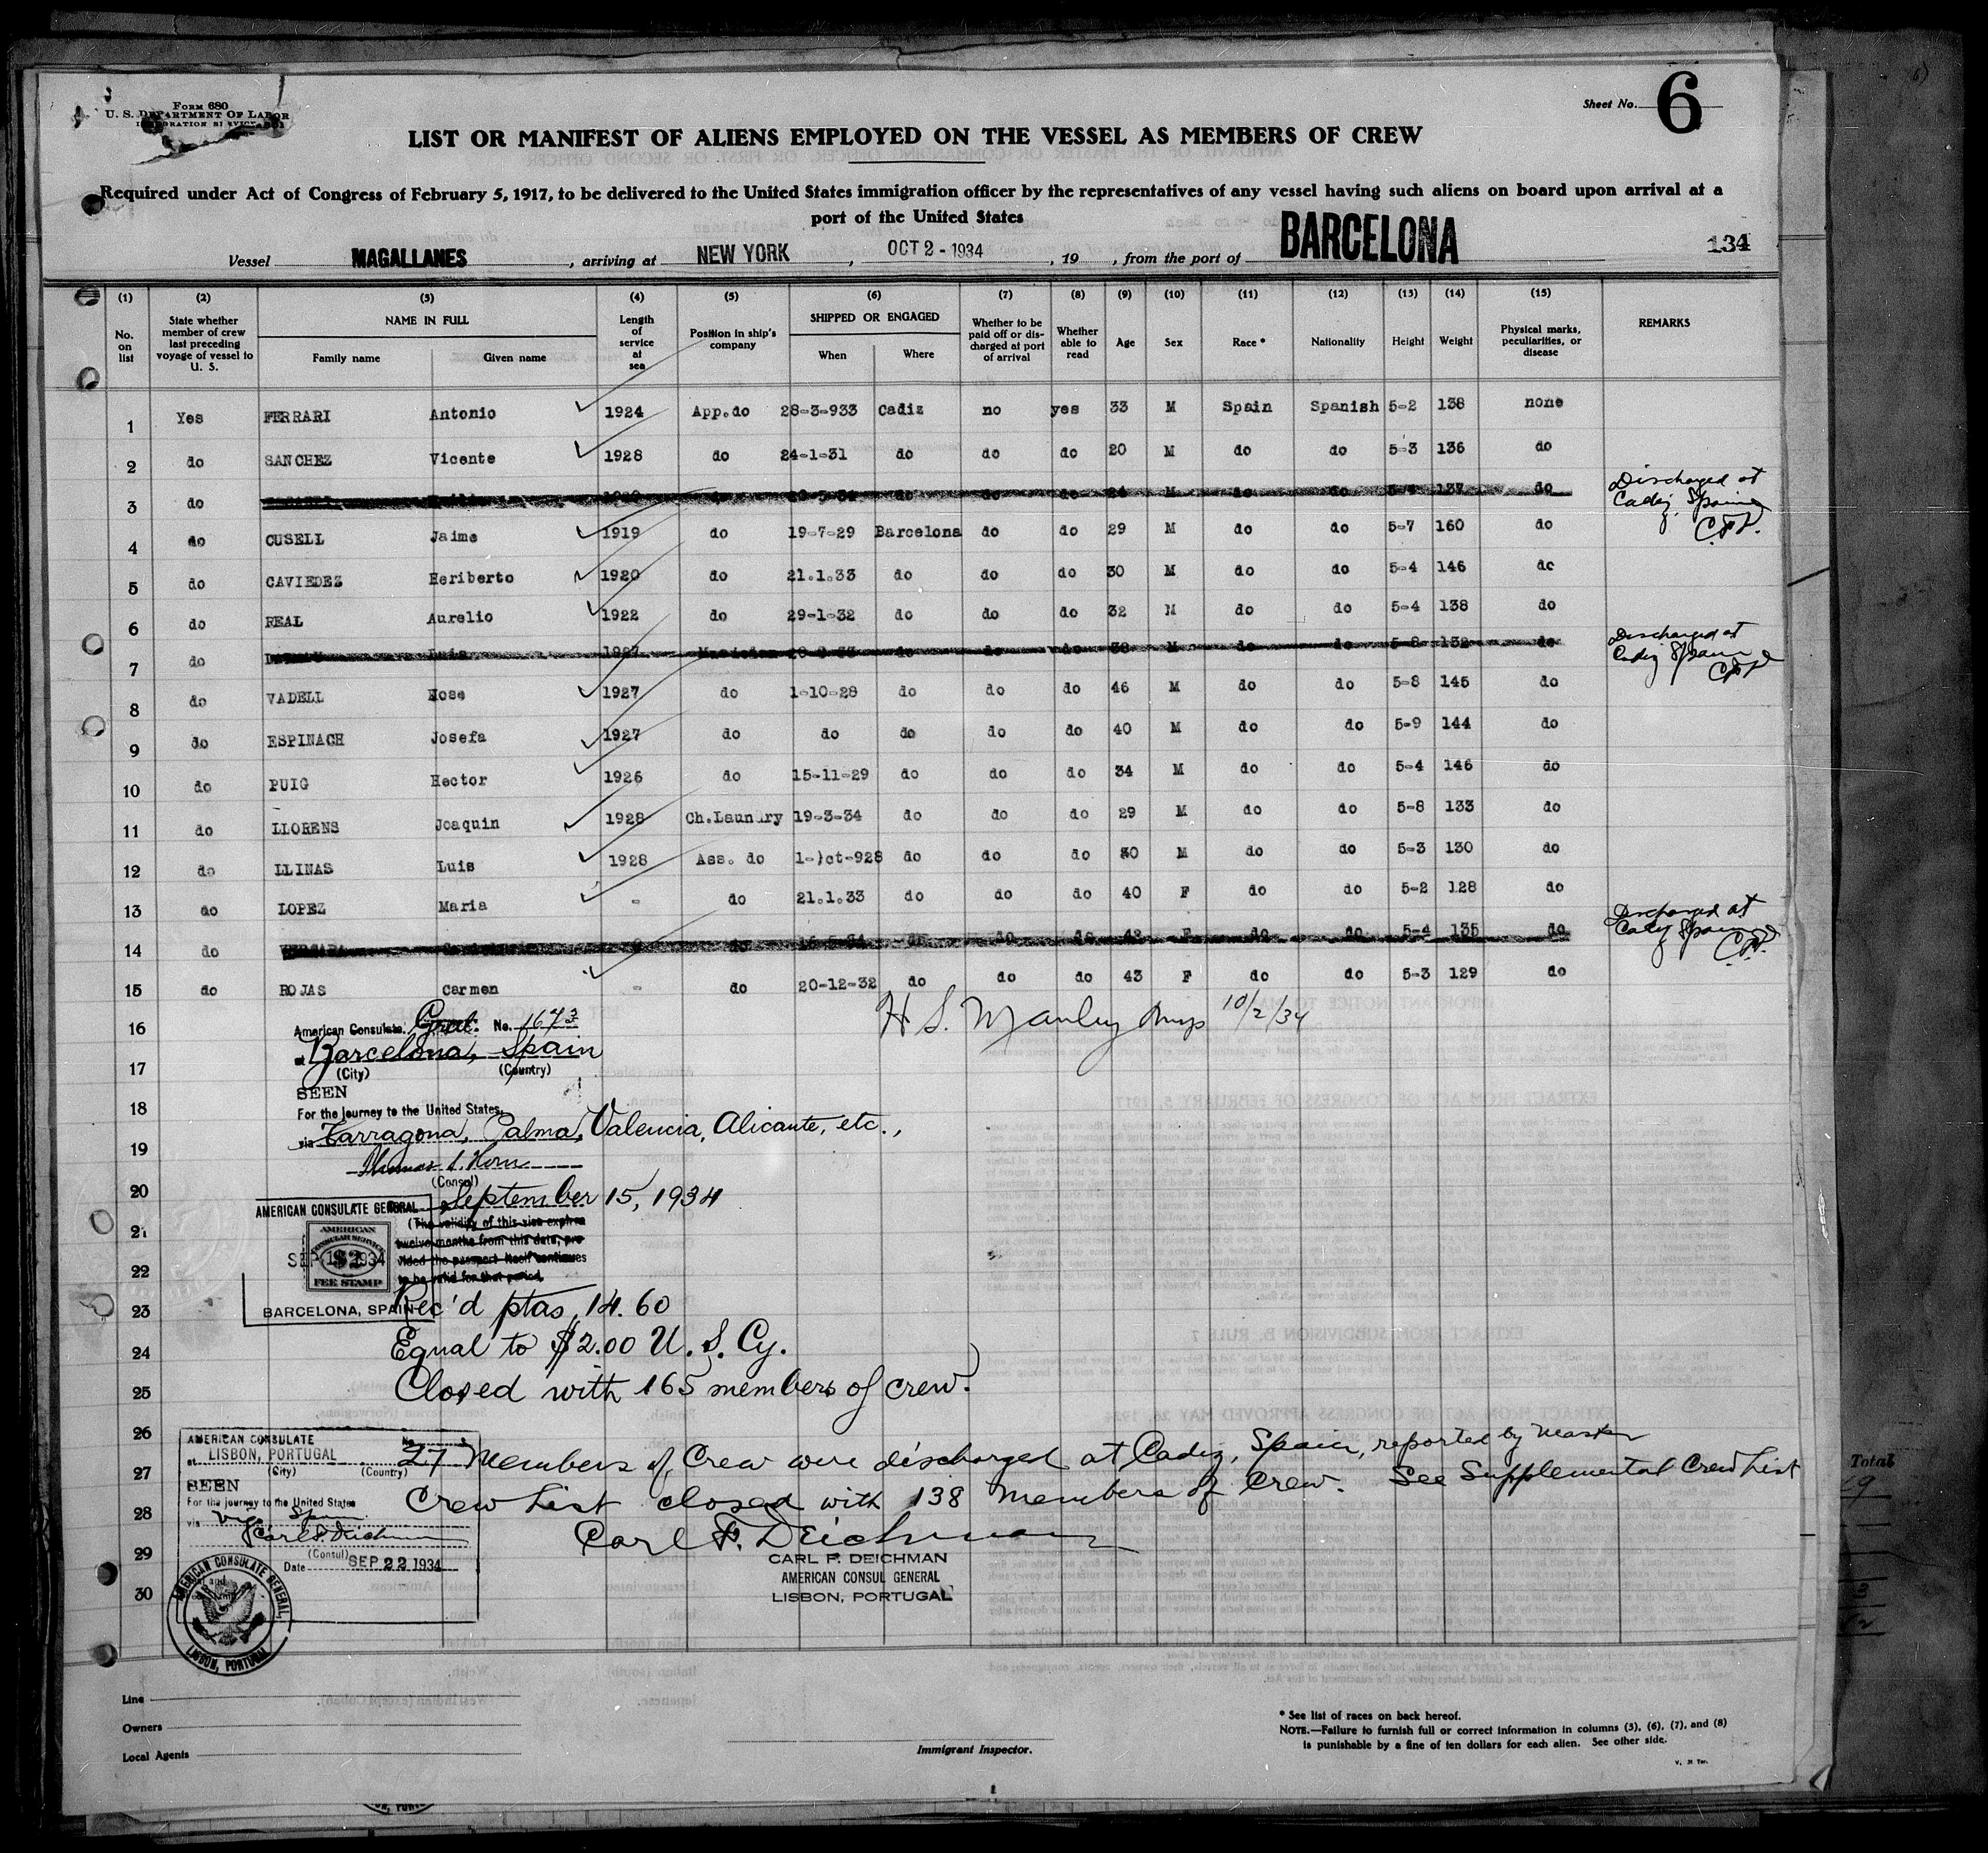 Form 680
U. S. DEPARTMENT OF LABOR
Sheet No. 6
LIST OR MANIFEST OF ALIENS EMPLOYED ON THE VESSEL AS MEMBERS OF CREW
Required under Act of Congress of February 5, 1917, to be delivered to the United States immigration officer by the representatives of any vessel having such aliens on board upon arrival at a
port of the United States
Vessel MAGALLANES, arriving at NEW YORK, OCT 2 - 1934, 19 , from the port of BARCELONA 134
(1) (2) (3) (4) (5) (6) (7) (8) (9) (10) (11) (12) (13) (14) (15)
No. on list State whether member of crew last preceding voyage of vessel to U. S. NAME IN FULL Family name Given name Length of service at sea Position in ship's company SHIPPED OR ENGAGED When Where Whether to be paid off or discharged at port of arrival Whether able to read Age Sex Race * Nationality Height Weight Physical marks, peculiarities, or disease REMARKS
1 Yes FERRARI Antonio 1924 App.do 28-3-933 Cadiz no yes 33 M Spain Spanish 5-2 138 none
2 do SANCHEZ Vicente 1928 do 24-1-31 do do do 20 M do do 5-3 136 do
3 do do do do M do do 5-4 137 do Discharged at Cadiz, Spain
4 do CUSELL Jaime 1919 do 19-7-29 Barcelona do do 29 M do do 5-7 160 do
5 do CAVIEDEZ Heriberto 1920 do 21.1.33 do do do 30 M do do 5-4 146 do
6 do REAL Aurelio 1922 do 29-1-32 do do do 32 M do do 5-4 138 do
7 do Luis 1927 do do do 38 M do do 5-8 132 do Discharged at Cadiz Spain
8 do VADELL Hose 1927 do 1-10-28 do do do 46 M do do 5-8 145 do
9 do ESPINACH Josefa 1927 do do do do do 40 M do do 5-9 144 do
10 do PUIG Hector 1926 do 15-11-29 do do do 34 M do do 5-4 146 do
11 do LLORENS Joaquin 1928 Ch.Laundry 19-3-34 do do do 29 M do do 5-8 133 do
12 do LLINAS Luis 1928 Ass. do 1-Oct-928 do do do 30 M do do 5-3 130 do
13 do LOPEZ Maria - do 21.1.33 do do do 40 F do do 5-2 128 do
14 do do do do F do do 5-4 135 do Discharged at Cadiz Spain
15 do ROJAS Carmen - do 20-12-32 do do do 43 F do do 5-3 129 do
16
17
18
19
20
21
22
23
24
25
26
27
28
29
30
American Consulate Genl. No. 1673
at Barcelona, Spain
(City) (Country)
SEEN
For the journey to the United States,
via Tarragona, Palma, Valencia, Alicante, etc.,
(Consul)
September 15, 1934
(The validity of this vise expires
twelve months from this date, pro-
vided the passport itself continues
to be valid for that period.
H. S. Manley 10/2/34
AMERICAN CONSULATE GENERAL
AMERICAN
CONSULAR SERVICE
$2
FEE STAMP
BARCELONA, SPAIN
Rec'd ptas 14.60
Equal to $2.00 U. S. Cy.
Closed with 165 members of crew.
27 Members of Crew were discharged at Cadiz, Spain, reported by Master
Crew List closed with 138 members of Crew. See Supplemental Crew List
Carl F. Deichman
CARL F. DEICHMAN
AMERICAN CONSUL GENERAL
LISBON, PORTUGAL
AMERICAN CONSULATE
at LISBON, PORTUGAL No.
(City) (Country)
SEEN
For the journey to the United States
via Vigo Spain
Carl F. Deichman
(Consul)
Date SEP 22 1934
AMERICAN CONSULATE GENERAL,
LISBON, PORTUGAL
Line
Owners
Local Agents
Immigrant Inspector.
* See list of races on back hereof.
NOTE.—Failure to furnish full or correct information in columns (3), (6), (7), and (8)
is punishable by a fine of ten dollars for each alien. See other side.
Total